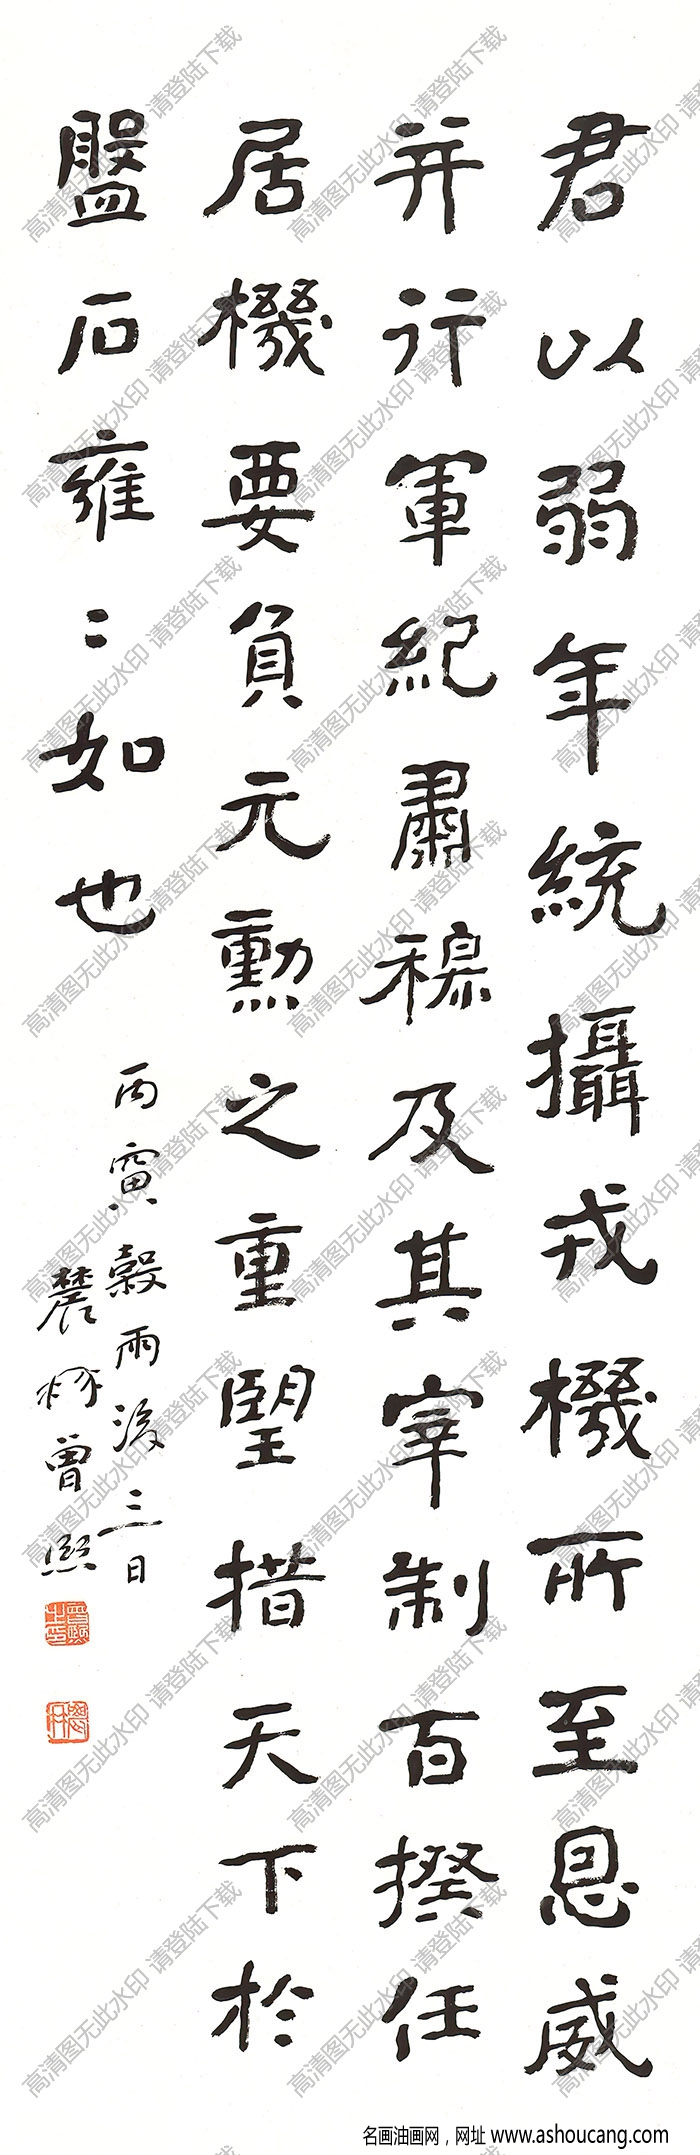 君以弱年統攝戎機所至恩威
并行軍紀肅穆及其宰制百揆任
居機要負元勳之重望措天下於
盤石雍〻如也
丙寅穀雨後三日
農髯曾熙
高清图无此水印 请登陆下载
名画油画网，网址 www.ashoucang.com